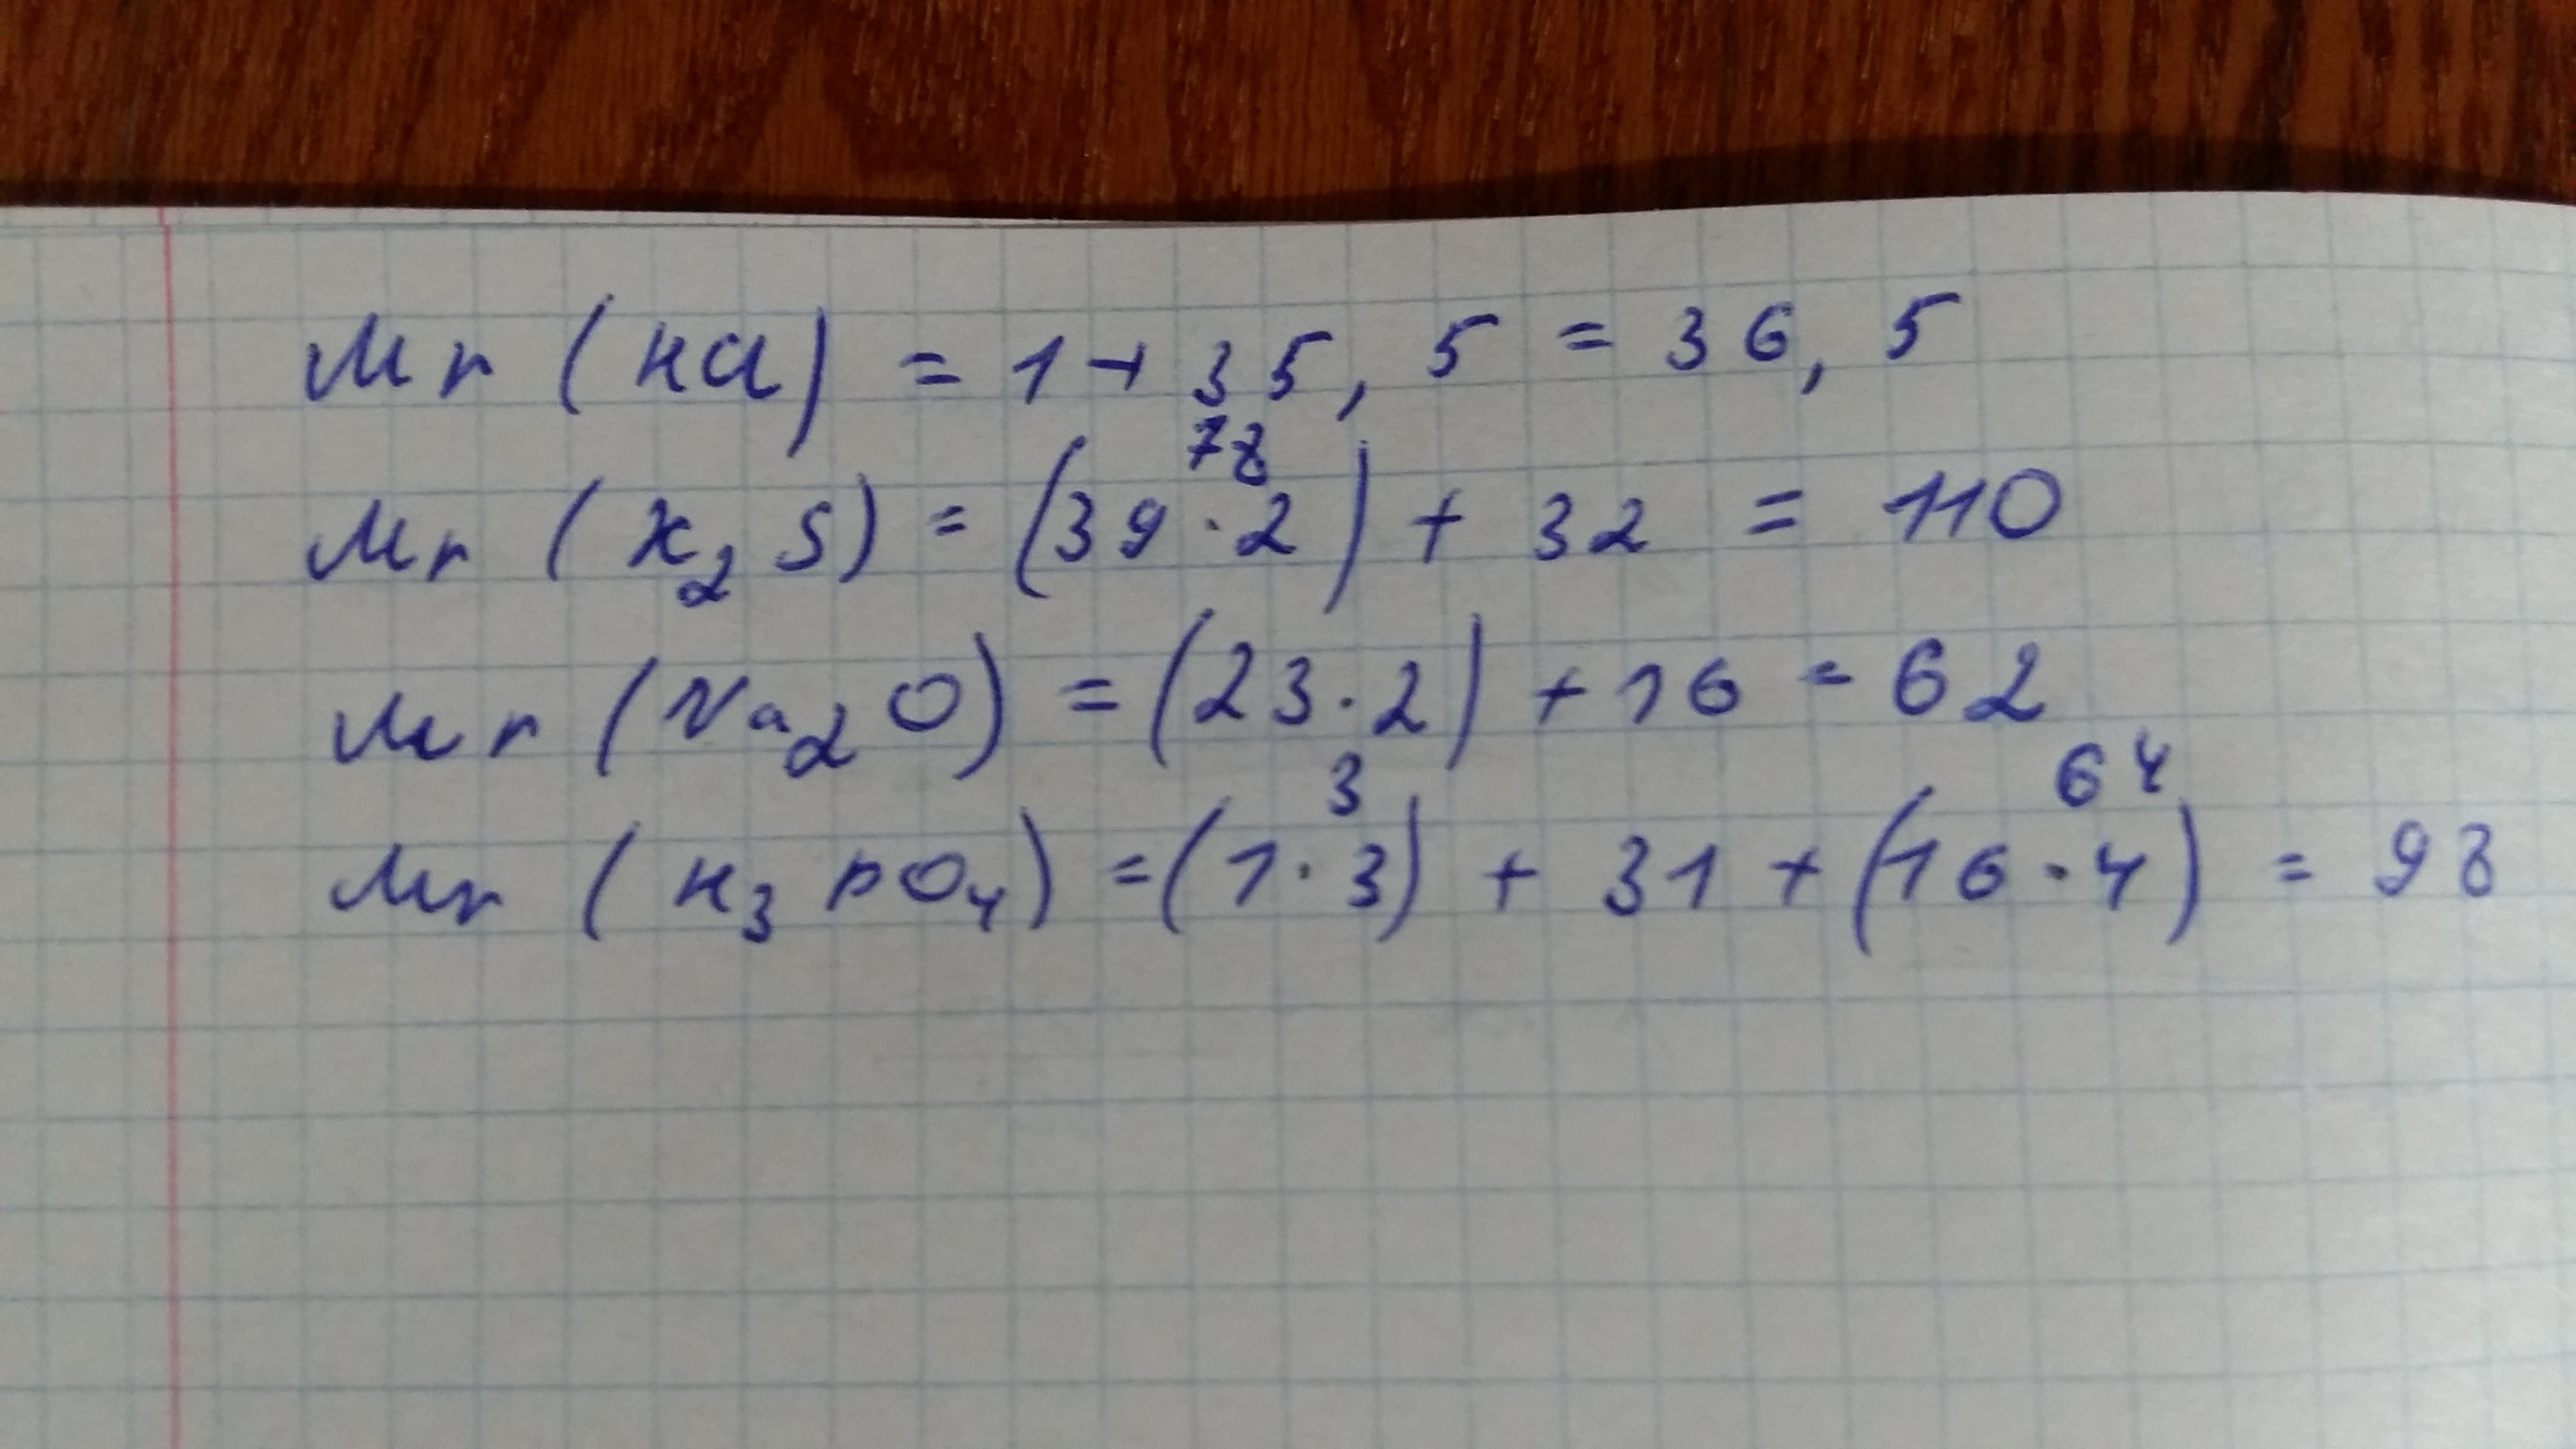 Mr (HCl) = 1 + 35,5 = 36,5
78
Mr (K₂S) = (39·2) + 32 = 110
Mr (Na₂O) = (23·2) + 16 = 62
3 64
Mr (H₃PO₄) = (1·3) + 31 + (16·4) = 98